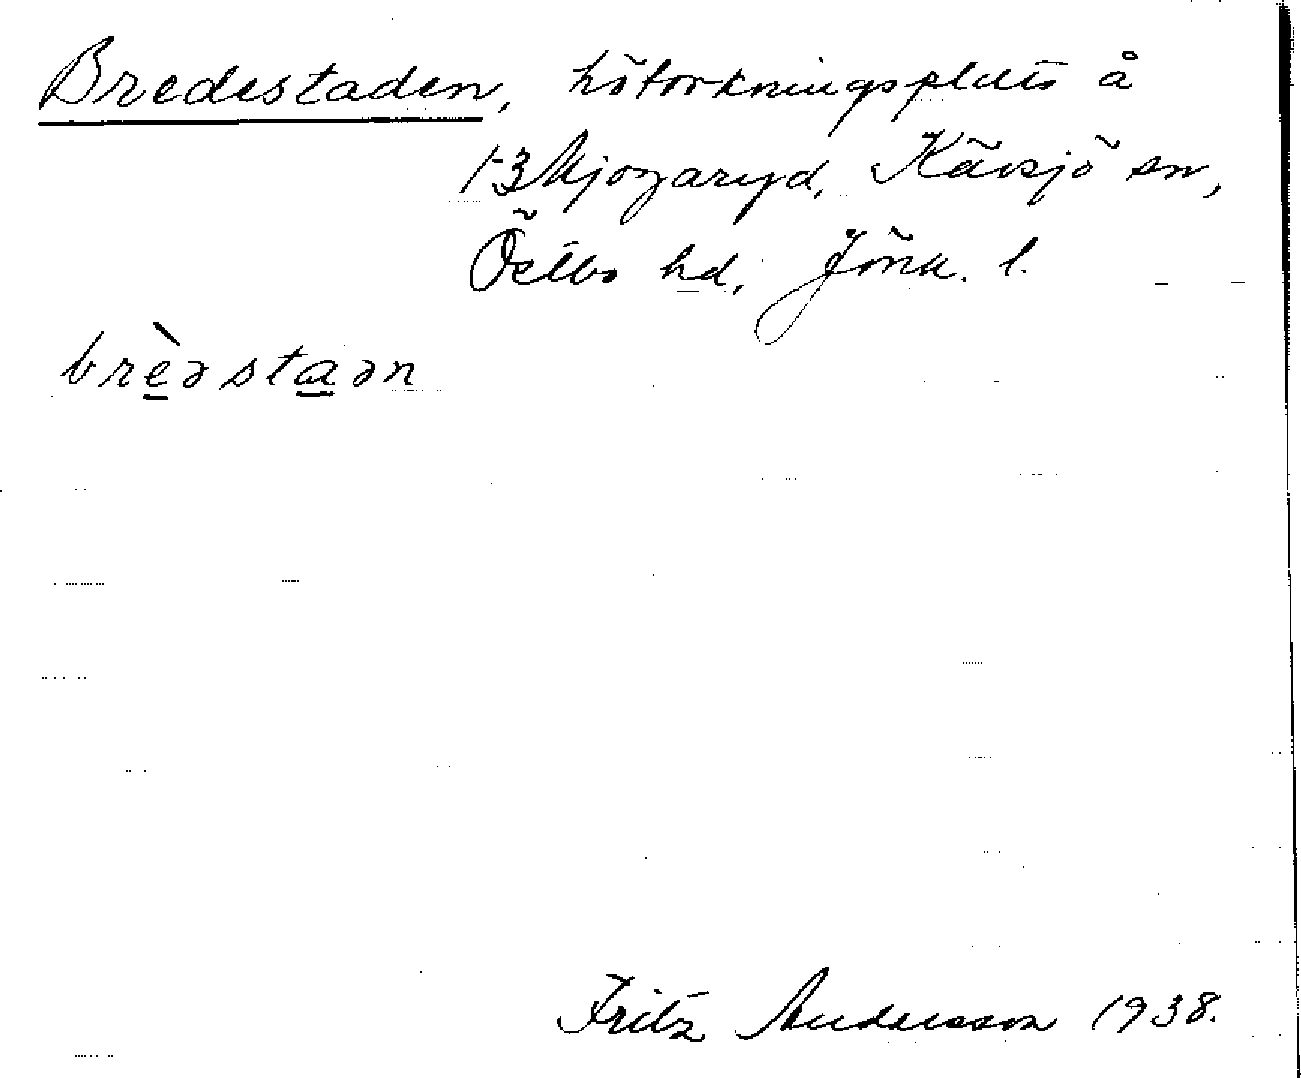 Bredestaden, hötorkningsplats å
1-3 Mjogaryd, Kävsjö sn,
Östbo hd, Jönk. l.
brèəstaən
Fritz Andersson 1938.